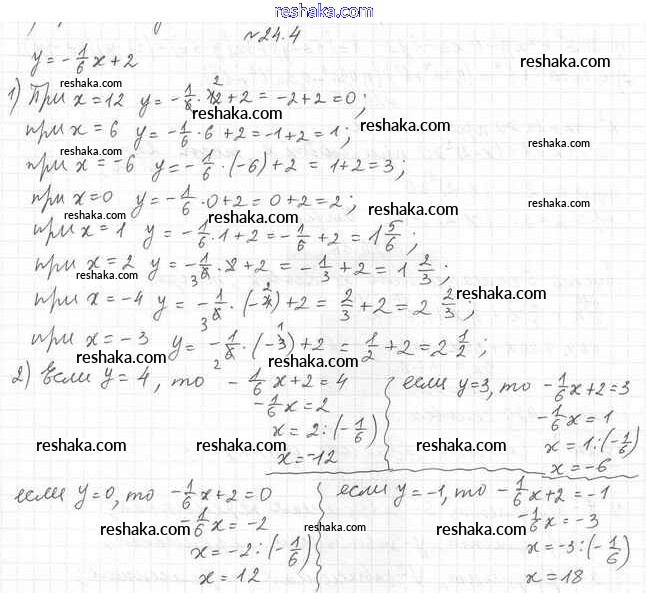 reshaka.com
№24.4
y = -1/6 x + 2
reshaka.com
reshaka.com
1) При x = 12 y = -1/6 · 12 + 2 = -2 + 2 = 0;
2
reshaka.com
при x = 6 y = -1/6 · 6 + 2 = -1 + 2 = 1;
reshaka.com
reshaka.com
при x = -6 y = -1/6 · (-6) + 2 = 1 + 2 = 3;
reshaka.com
при x = 0 y = -1/6 · 0 + 2 = 0 + 2 = 2;
reshaka.com
reshaka.com
reshaka.com
reshaka.com
при x = 1 y = -1/6 · 1 + 2 = -1/6 + 2 = 1 5/6;
при x = 2 y = -1/6 · 2 + 2 = -1/3 + 2 = 1 2/3;
3
reshaka.com
reshaka.com
при x = -4 y = -1/6 · (-4) + 2 = 2/3 + 2 = 2 2/3;
3 2
при x = -3 y = -1/6 · (-3) + 2 = 1/2 + 2 = 2 1/2;
2 1
reshaka.com
reshaka.com
2) Если y = 4, то -1/6 x + 2 = 4
-1/6 x = 2
x = 2 : (-1/6)
x = -12
если y = 3, то -1/6 x + 2 = 3
-1/6 x = 1
x = 1 : (-1/6)
x = -6
reshaka.com
reshaka.com
reshaka.com
reshaka.com
если y = 0, то -1/6 x + 2 = 0
-1/6 x = -2
x = -2 : (-1/6)
x = 12
если y = -1, то -1/6 x + 2 = -1
-1/6 x = -3
x = -3 : (-1/6)
x = 18
reshaka.com
reshaka.com
reshaka.com